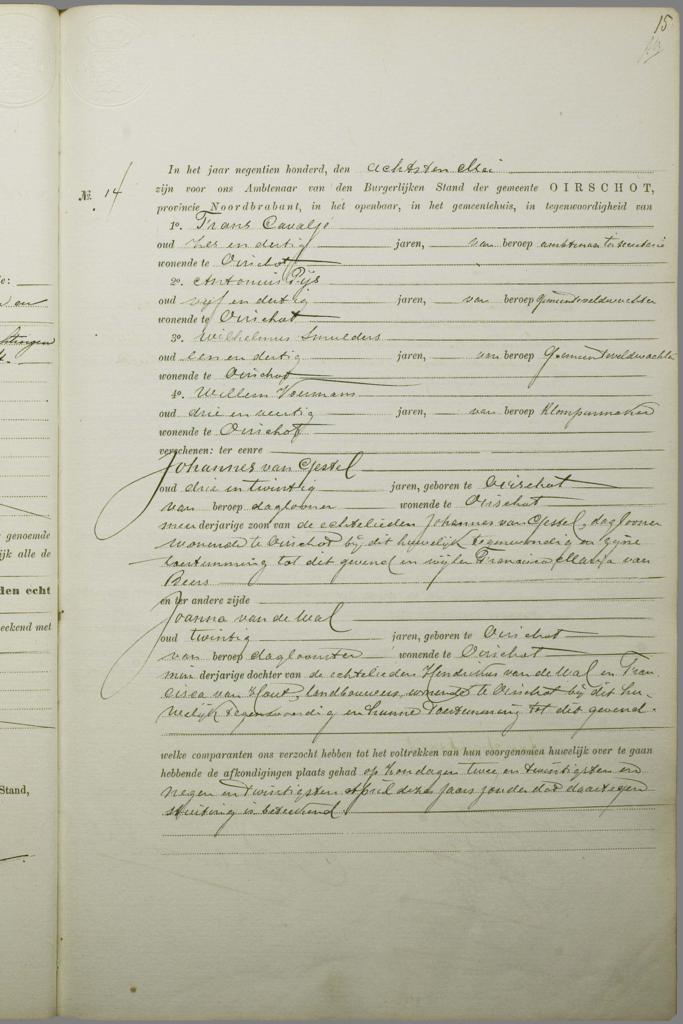 15
In het jaar negentien honderd, den achtsten Mei
No. 14
zijn voor ons Ambtenaar van den Burgerlijken Stand der gemeente OIRSCHOT,
provincie Noordbrabant, in het openbaar, in het gemeentehuis, in tegenwoordigheid van
1o. Frans Cavalje
oud zes en dertig jaren, van beroep ambtenaar ter secretarie
wonende te Oirschot
2o. Antonius Pijs
oud vijf en dertig jaren, van beroep Gemeenteveldwachter
wonende te Oirschot
3o. Wilhelmus Smulders
oud een en dertig jaren, van beroep Gemeenteveldwachter
wonende te Oirschot
4o. Willem
oud drie en veertig jaren, van beroep Klompenmaker
wonende te Oirschot
verschenen: ter eenre
Johannes van Gestel
oud drie en twintig jaren, geboren te Oirschot
van beroep daglooner wonende te Oirschot
meerderjarige zoon van de echtelieden Johannes van Gestel, daglooner
wonende te Oirschot bij dit huwelijk tegenwoordig en zijne
toestemming tot dit gevend en wijlen Francisca Maria van
Beers
en ter andere zijde
Joanna van de Wal
oud twintig jaren, geboren te Oirschot
van beroep dagloonster wonende te Oirschot
minderjarige dochter van de echtelieden Hendrikus van de Wal en Fran-
cisca van Hout, landbouwers, wonende te Oirschot bij dit hu-
welijk tegenwoordig en hunne toestemming tot dit gevend.
welke comparanten ons verzocht hebben tot het voltrekken van hun voorgenomen huwelijk over te gaan
hebbende de afkondigingen plaats gehad op Zondagen twee en twintigsten en
negen en twintigsten April dezes jaars zonder dat daartegen
stuiting is beteekend.
e:
en
genoemde
ijk alle de
den echt
eekend met
Stand,